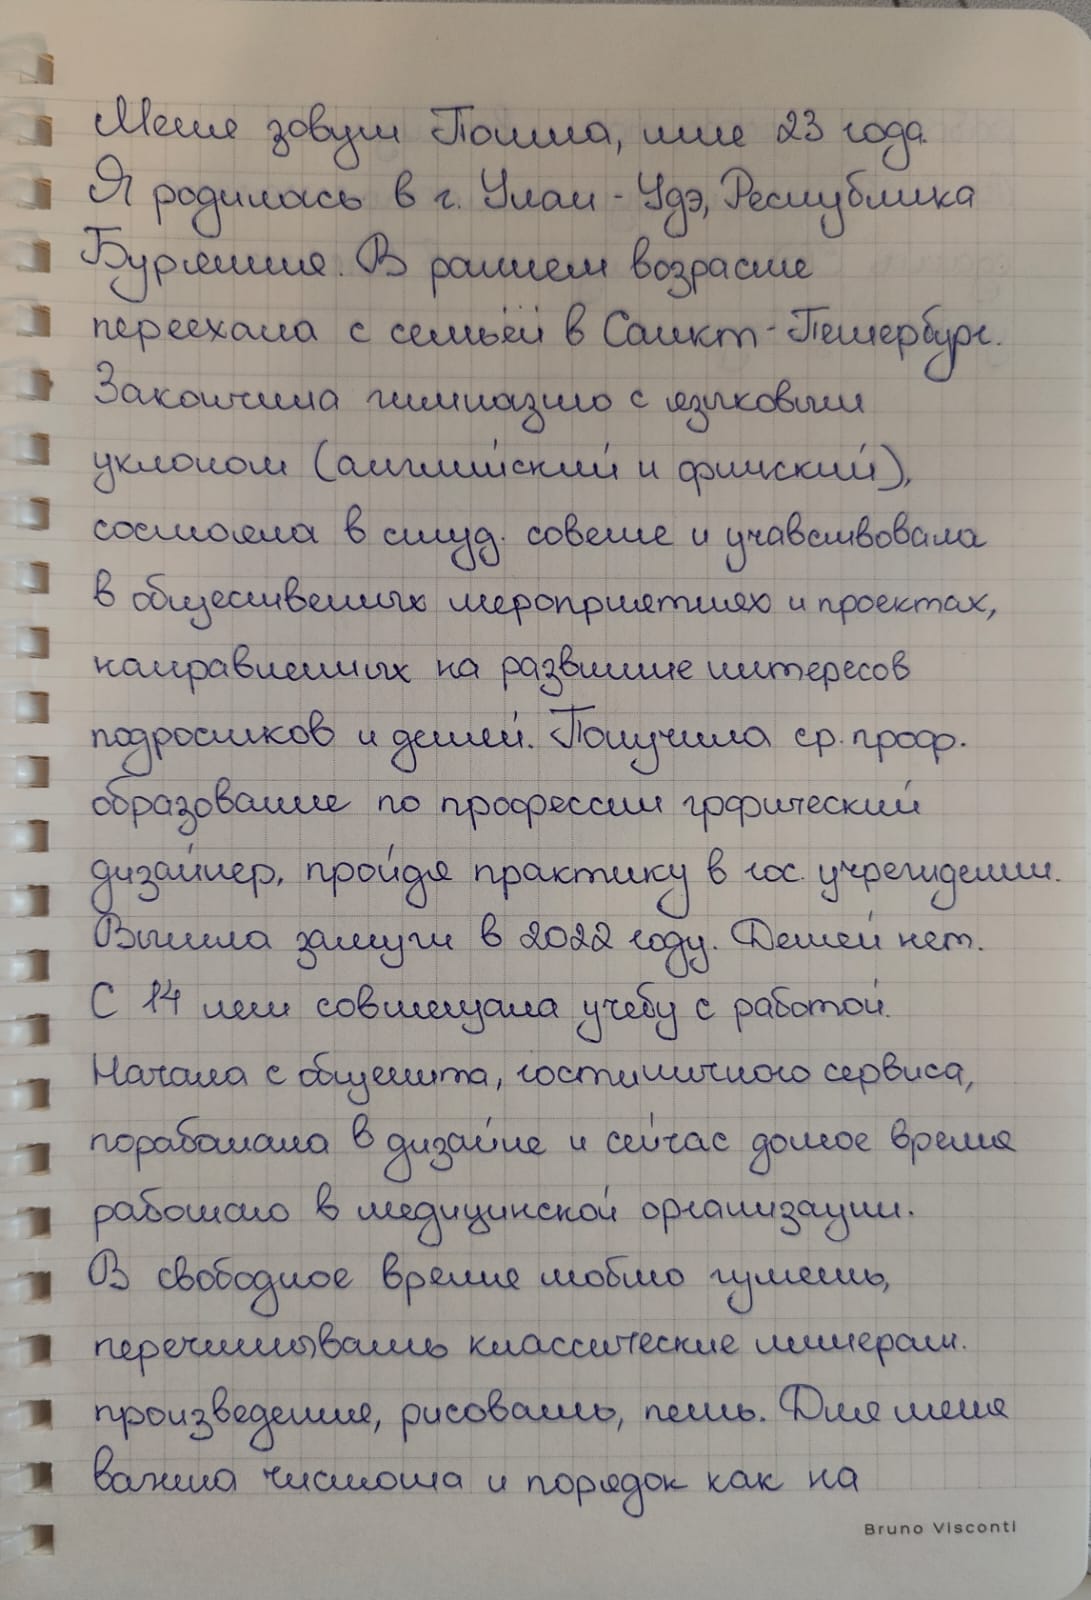 Меня зовут Полина, мне 23 года.
Я родилась в г. Улан-Удэ, Республика
Бурятия. В раннем возрасте
переехала с семьёй в Санкт-Петербург.
Закончила гимназию с языковым
уклоном (английский и финский),
состояла в студ. совете и учавствовала
в общественных мероприятиях и проектах,
направленных на развитие интересов
подростков и детей. Получила ср. проф.
образование по профессии грфический
дизайнер, пройдя практику в гос. учреждении.
Вышла замуж в 2022 году. Детей нет.
С 14 лет совмещала учебу с работой.
Начала с общепита, гостиничного сервиса,
поработала в дизайне и сейчас долгое время
работаю в медицинской организации.
В свободное время люблю гулять,
перечитывать классические литерат.
произведения, рисовать, петь. Для меня
важна чистота и порядок как на
Bruno Visconti